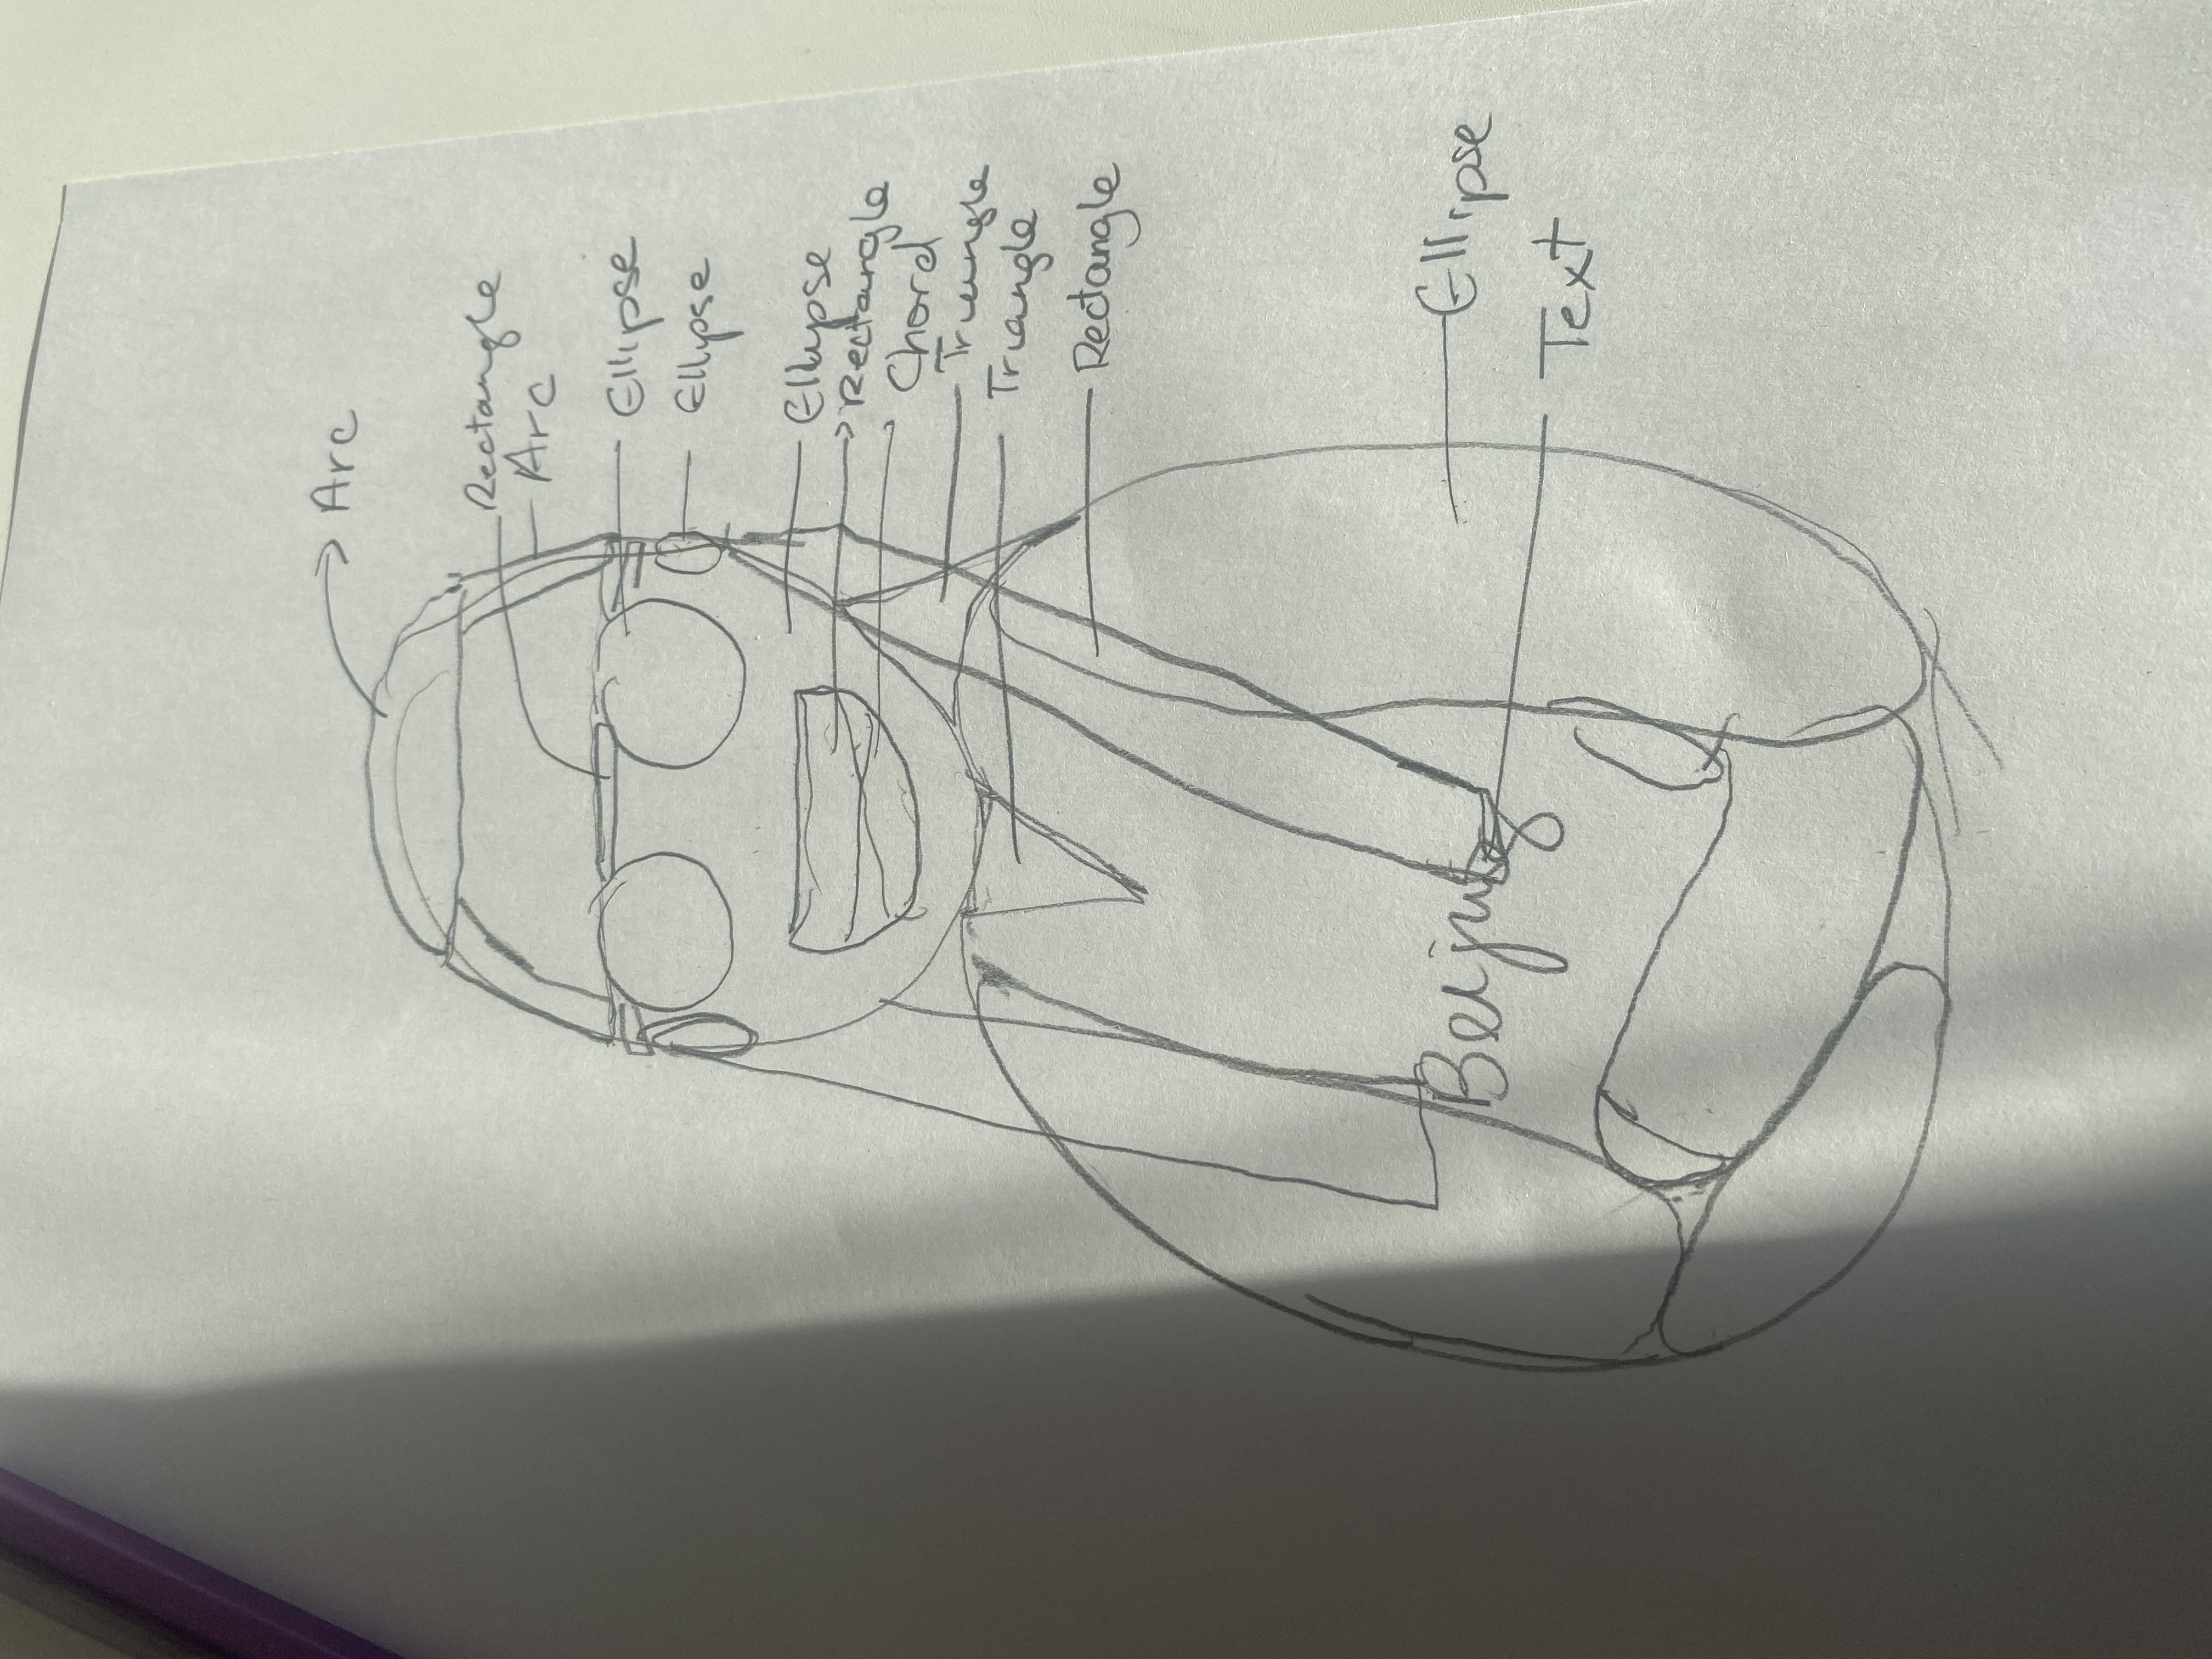 Arc
Rectangle
Arc
Ellipse
Ellipse
Ellypse
Rectangle
Chord
Triangle
Triangle
Rectangle
Beijing
Ellipse
Text